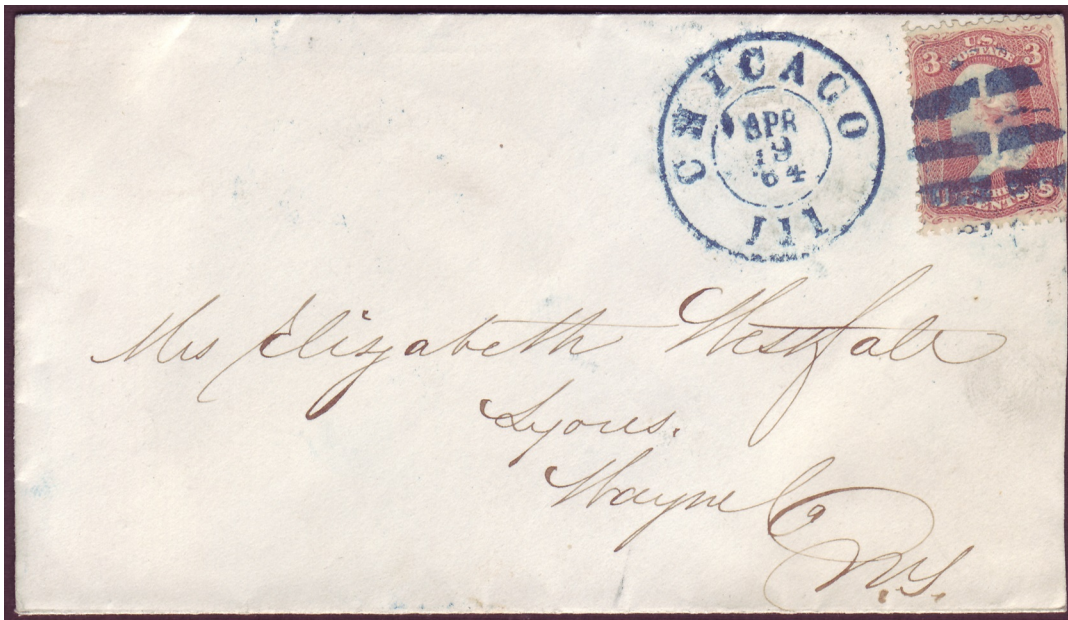 CHICAGO
APR
19
'64
Ill
3 U.S. 3
POSTAGE
CENTS
Mrs Elizabeth Westfall
Lyons.
Wayne Co
N.Y.